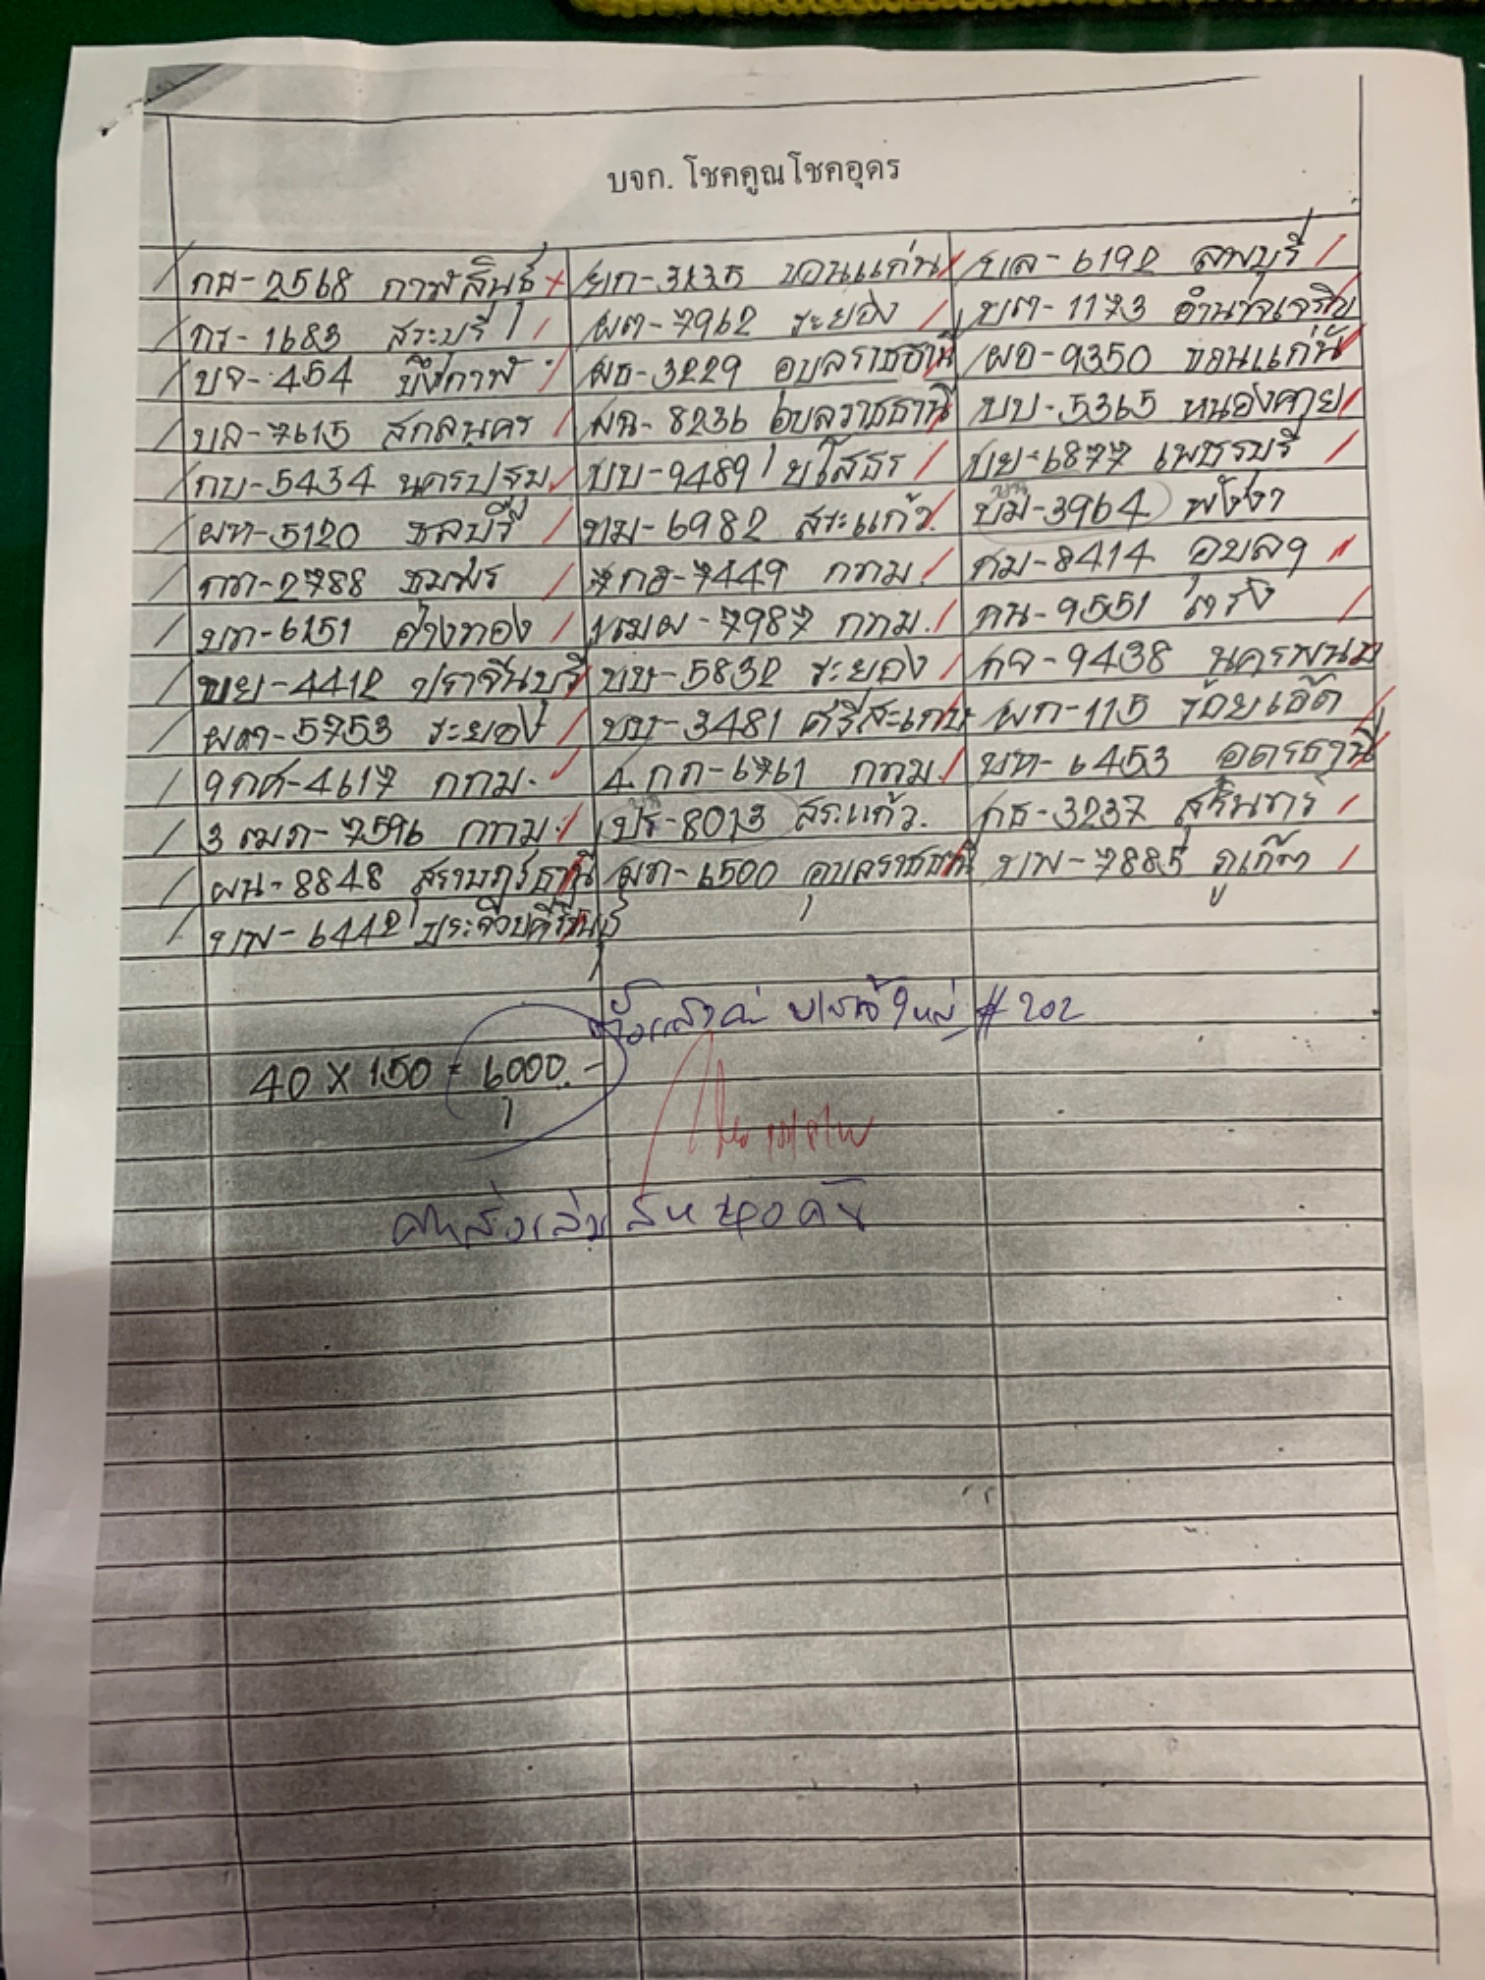 บจก. โชคคูณโชคอุดร
กส-2568 กาฬสินธุ์ ยก-3135 ขอนแก่น บล-6192 ลพบุรี
กร-1683 สระบุรี ผต-7962 ระยอง บต-1173 อำนาจเจริญ
บจ-454 บึงกาฬ ผธ-3229 อุบลราชธานี ผอ-9350 ขอนแก่น
บล-7615 สกลนคร ผฉ-8236 อุบลราชธานี บบ-5365 หนองคาย
กบ-5434 นครปฐม บบ-9489 ยโสธร บย-6877 เพชรบุรี
ผท-5120 ชลบุรี ทม-6982 สระแก้ว บม-3964 พังงา
กก-2788 ชุมพร 7กธ-7449 กทม. กม-8414 อุบลฯ
บก-6151 อ่างทอง 1ฒผ-7987 กทม. กน-9551 ตรัง
ขย-4412 ปราจีนบุรี บบ-5832 ระยอง กจ-9438 นครพนม
ผต-5753 ระยอง บบ-3481 ศรีสะเกษ ผก-115 ร้อยเอ็ด
9กศ-4617 กทม. 4กภ-6761 กทม. บห-6453 อุดรธานี
3ฒก-7596 กทม. ปร-8013 สระแก้ว กธ-3237 สุรินทร์
ผน-8848 สุราษฎร์ธานี ผก-6500 อุบลราชธานี บพ-7885 ภูเก็ต
บพ-6442 ประจวบคีรีขันธ์
#202
40 X 150 = 6000.-